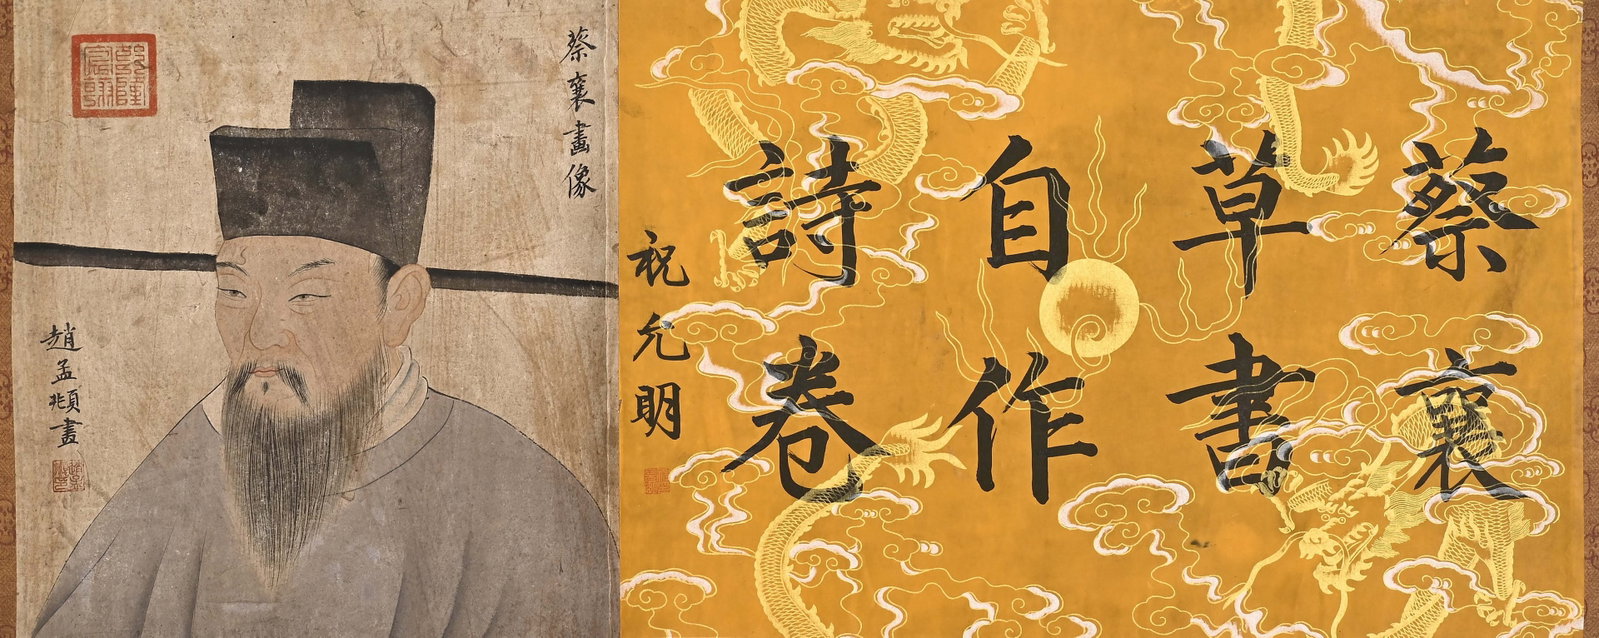 蔡襄
草書
自作
詩卷
祝允明
蔡襄畫像
趙孟頫畫